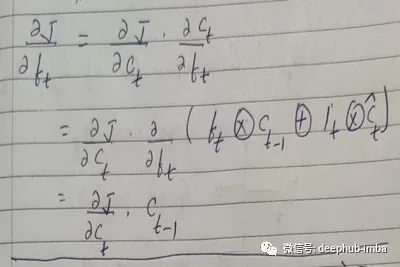 ∂J/∂f_t = ∂J/∂C_t · ∂C_t/∂f_t
= ∂J/∂C_t · ∂/∂f_t ( f_t ⊗ C_{t-1} ⊕ i_t ⊗ Ĉ_t )
= ∂J/∂C_t · C_{t-1}
微信号: deephub-imba